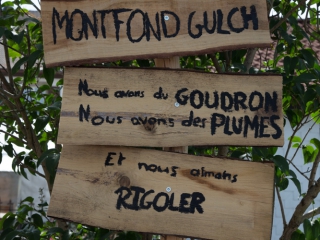 MONTFOND GULCH
Nous avons du GOUDRON
Nous avons des PLUMES
Et nous aimons
RIGOLER